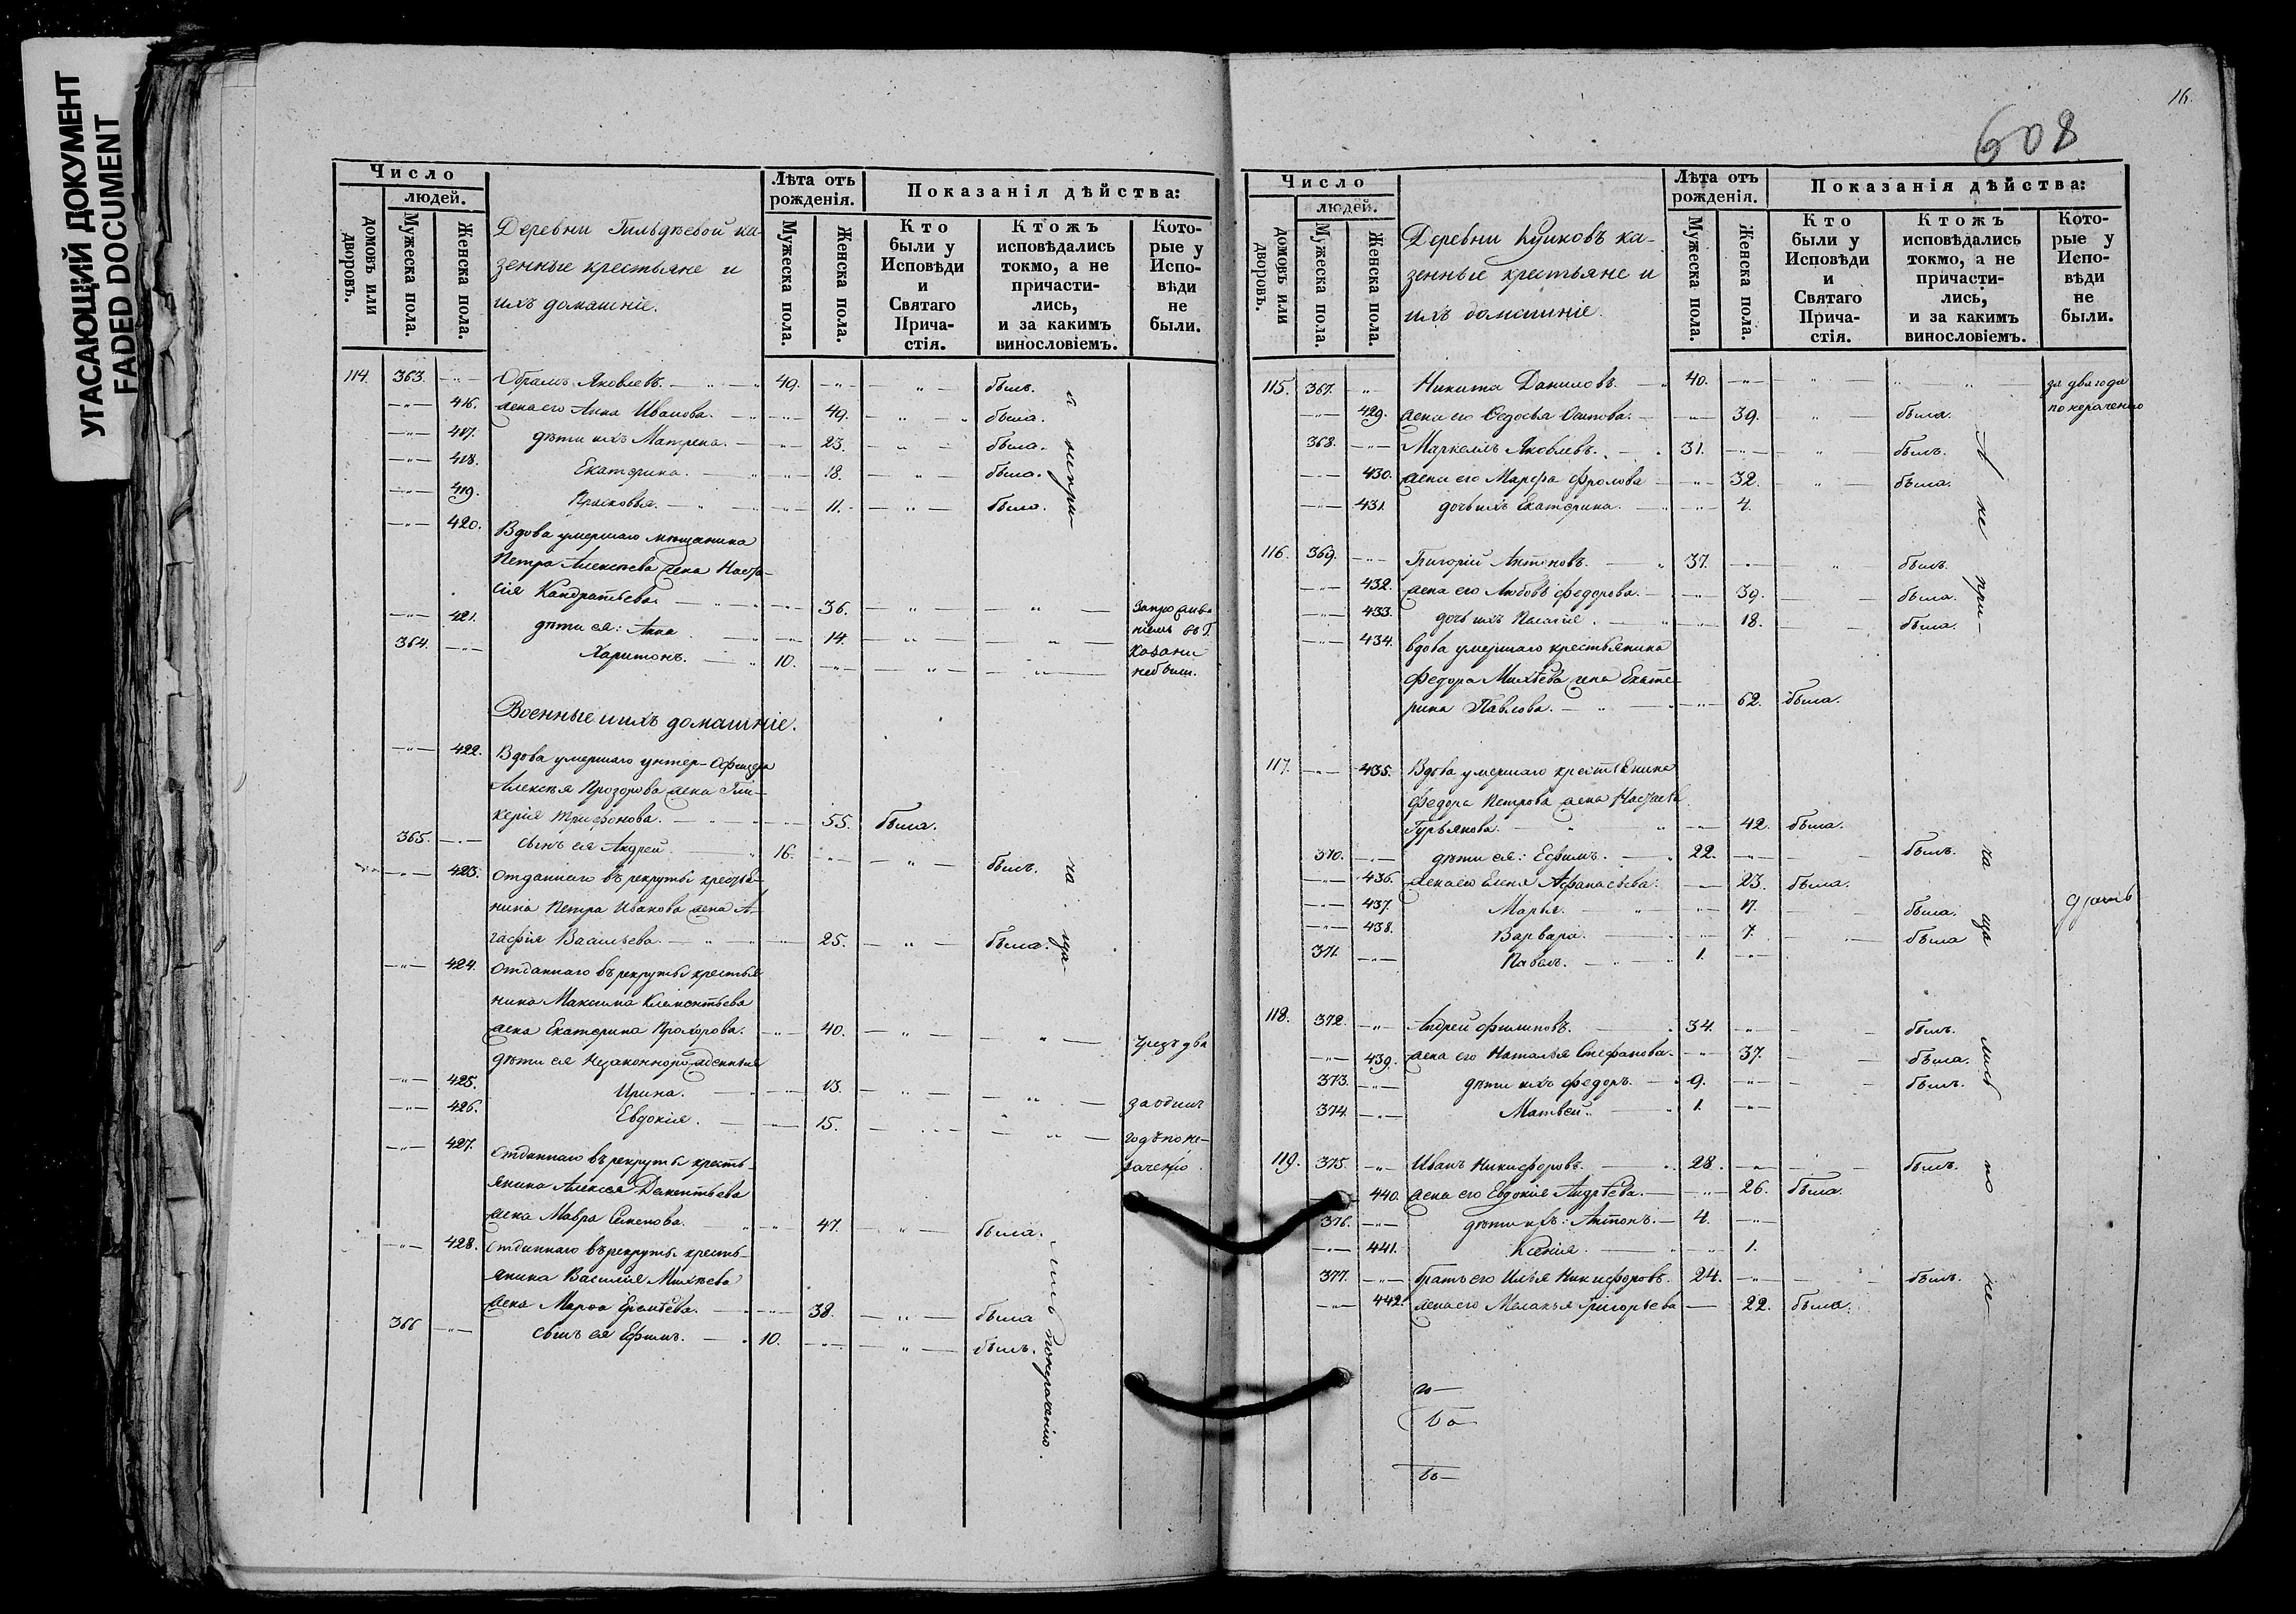 УГАСАЮЩИЙ ДОКУМЕНТ
FADED DOCUMENT
Число
людей.
домовъ или дворовъ.
Мужеска пола.
Женска пола.
Деревни Гильдѣевой ка-
зенные крестьяне и
ихъ домашніе.
Лѣта отъ рожденія.
Мужеска пола.
Женска пола.
Показанія дѣйства:
Кто были у Исповѣди и Святаго Прича-стія.
Ктожъ исповѣдались токмо, а не причасти-лись, и за какимъ винословіемъ.
Кото-рые у Испо-вѣди не были.
114. 363. Абрамъ Яковлевъ. 49. былъ.
416. жена его Анна Иванова. 49. была.
417. дѣти ихъ Матрена. 23. была.
418. Екатерина. 18. была.
419. Прасковья. 11. была.
420. Вдова умершаго мѣщанина
Петра Алексѣева жена Наста-
сія Кандратьева 36.
421. дѣти ея: Анна 14.
364. Харитонъ. 10.
Казани
небыли.
Военные и ихъ домашніе.
422. Вдова умершаго унтер-Офицера
Алексѣя Прозорова жена Гли-
керія Трифонова. 55. была.
365. сынъ ея Андрей 16. былъ.
423. Отданнаго въ рекруты крестья-
нина Петра Иванова жена А-
гафія Васильева. 25. была.
424. Отданнаго въ рекруты крестья-
нина Максима Клементьева
жена Екатерина Прохорова. 40.
дѣти ея незаконнорожденныя
425. Ирина. 13.
за одинъ
426. Евдокія. 15.
годъ по не-
раченію
427. Отданнаго въ рекруты кресть-
янина Алексѣя Дементьева
жена Мавра Семенова. 47. была.
428. Отданнаго въ рекруты кресть-
янина Василія Михѣева
жена Марфа Еремѣева. 38. была
366 сынъ ея Ефимъ. 10. былъ.
а непри-
ча-
ща-
лись понераченію.
16.
608
Число
людей.
домовъ или дворовъ.
Мужеска пола.
Женска пола.
Деревни Куюковъ ка-
зенные крестьяне и
ихъ домашніе.
Лѣта отъ рожденія.
Мужеска пола.
Женска пола.
Показанія дѣйства:
Кто были у Исповѣди и Святаго Прича-стія.
Ктожъ исповѣдались токмо, а не причасти-лись, и за какимъ винословіемъ.
Кото-рые у Испо-вѣди не были.
115. 367. Никита Даниловъ 40. за два года
по нераченію
429. жена его Федосья Осипова. 39. была.
368. Маркеллъ Яковлевъ. 31. былъ.
430. жена его Марфа Фролова 32. была.
431. дочь ихъ Екатерина. 4.
116. 369. Григорій Антоновъ. 37. былъ.
432. жена его Любовь Федорова. 39. была.
433. дочь ихъ Пелагія. 18. была.
434. вдова умершаго крестьянина
Федора Михѣева жена Екате-
рина Павлова. 62. была.
117. 435. Вдова умершаго крестьянина
Федора Петрова жена Настасья
Гурьянова. 42. была.
370. дѣти ея: Ефимъ. 22. былъ.
436. жена его Елена Афанасьева. 23. была.
437. Марья. 17. была.
438. Варвара. 7. была
371. Павелъ. 1.
118. 372. Андрей Филиповъ. 34. былъ.
439. жена его Наталья Стефанова. 37. была.
373. дѣти ихъ Федоръ. 9. былъ.
374. Матвей. 1.
119. 375. Иванъ Никифоровъ. 28. былъ.
440. жена его Евдокія Андрѣева. 26. была.
376. дѣти ихъ: Антонъ. 4.
441. Ксенія. 1.
377. братъ его Илья Никифоровъ. 24. былъ.
442. жена его Меланья Григорьева 22. была.
А не при-
ча ща лись по не-